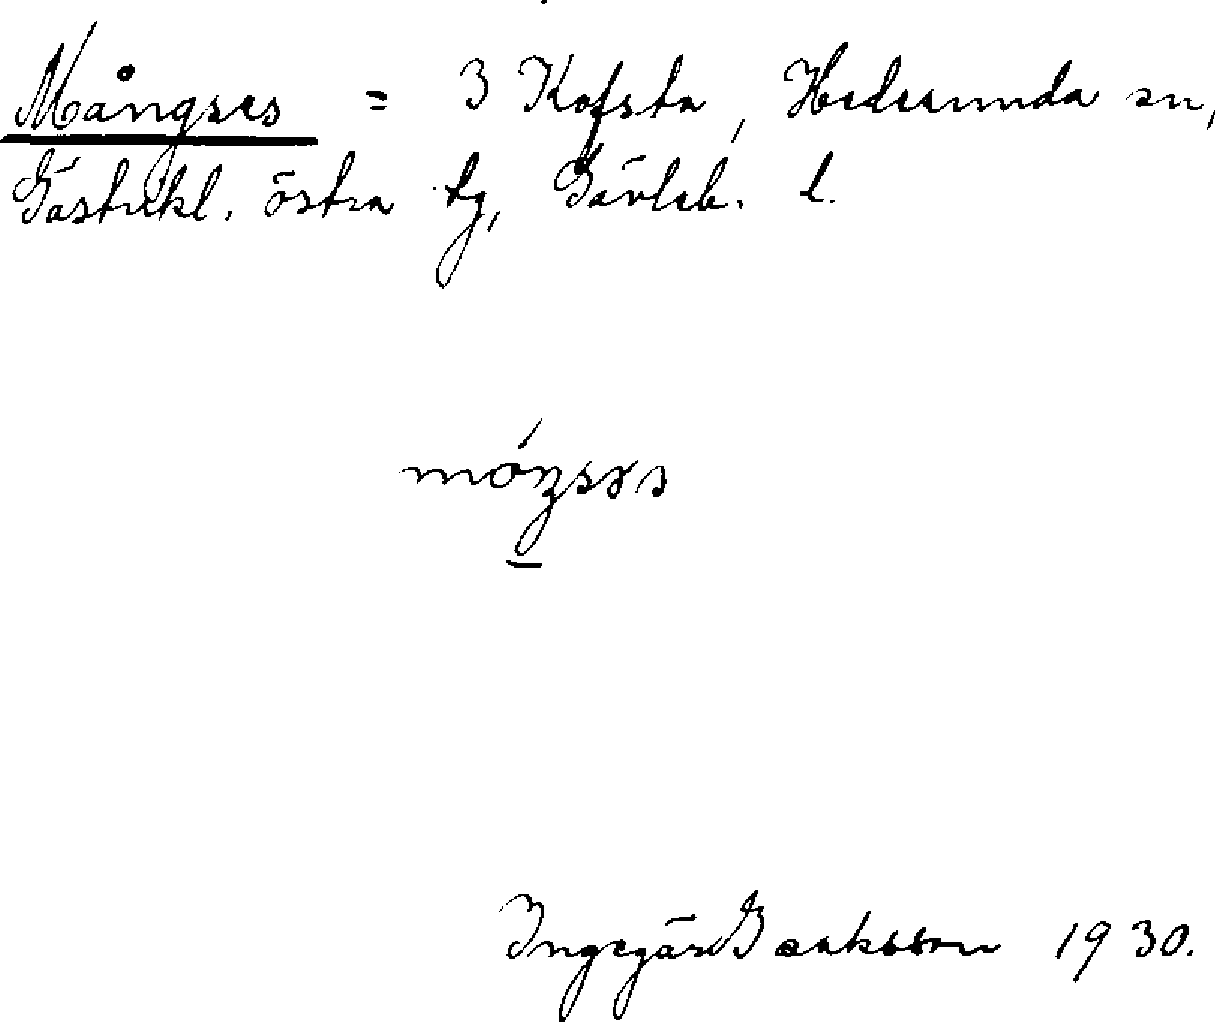 Mångses = 3 Kofsta, Hedesunda sn,
Gästrikl. östra tg, Gävleb. l.
Ingegärd 1930.